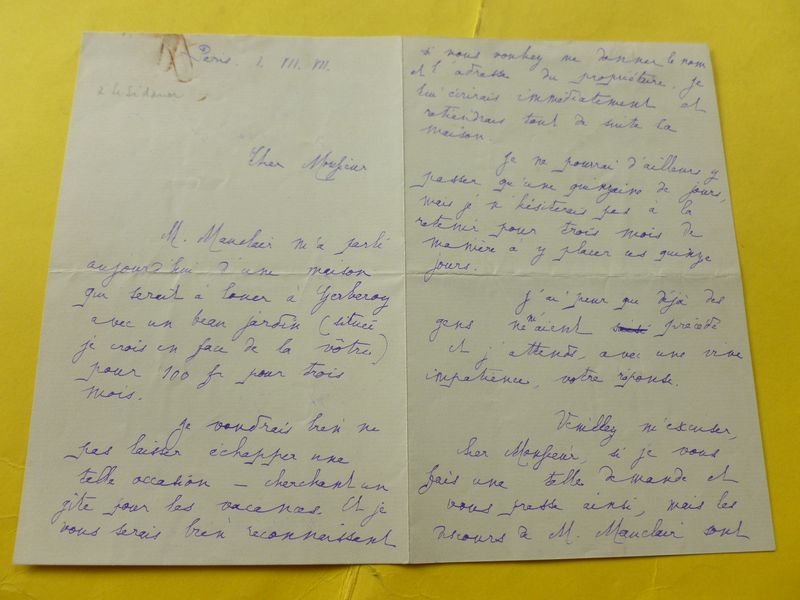 Paris. 1. VII. VII.
à Le Sidaner
Cher Monsieur
M. Mauclair m'a parlé
aujourd'hui d'une maison
qui serait à louer à Gerberoy
avec un beau jardin (située
je crois en face de la vôtre)
pour 100 fr pour trois
mois.
Je voudrais bien ne
pas laisser échapper une
telle occasion – cherchant un
gîte pour les vacances. Et je
vous serais bien reconnaissant
si vous vouliez me donner le nom
et l'adresse du propriétaire. Je
lui écrirais immédiatement et
retiendrais tout de suite la
maison.
Je ne pourrai d'ailleurs y
passer qu'une quinzaine de jours,
mais je n'hésiterais pas à la
retenir pour trois mois de
manière à y placer ces quinze
jours.
J'ai peur que déjà des
gens ne m'aient précédé
et j'attends, avec une vive
impatience, votre réponse.
Veuillez m'excuser,
cher Monsieur, si je vous
fais une telle demande et
vous presse ainsi, mais les
discours de M. Mauclair sont